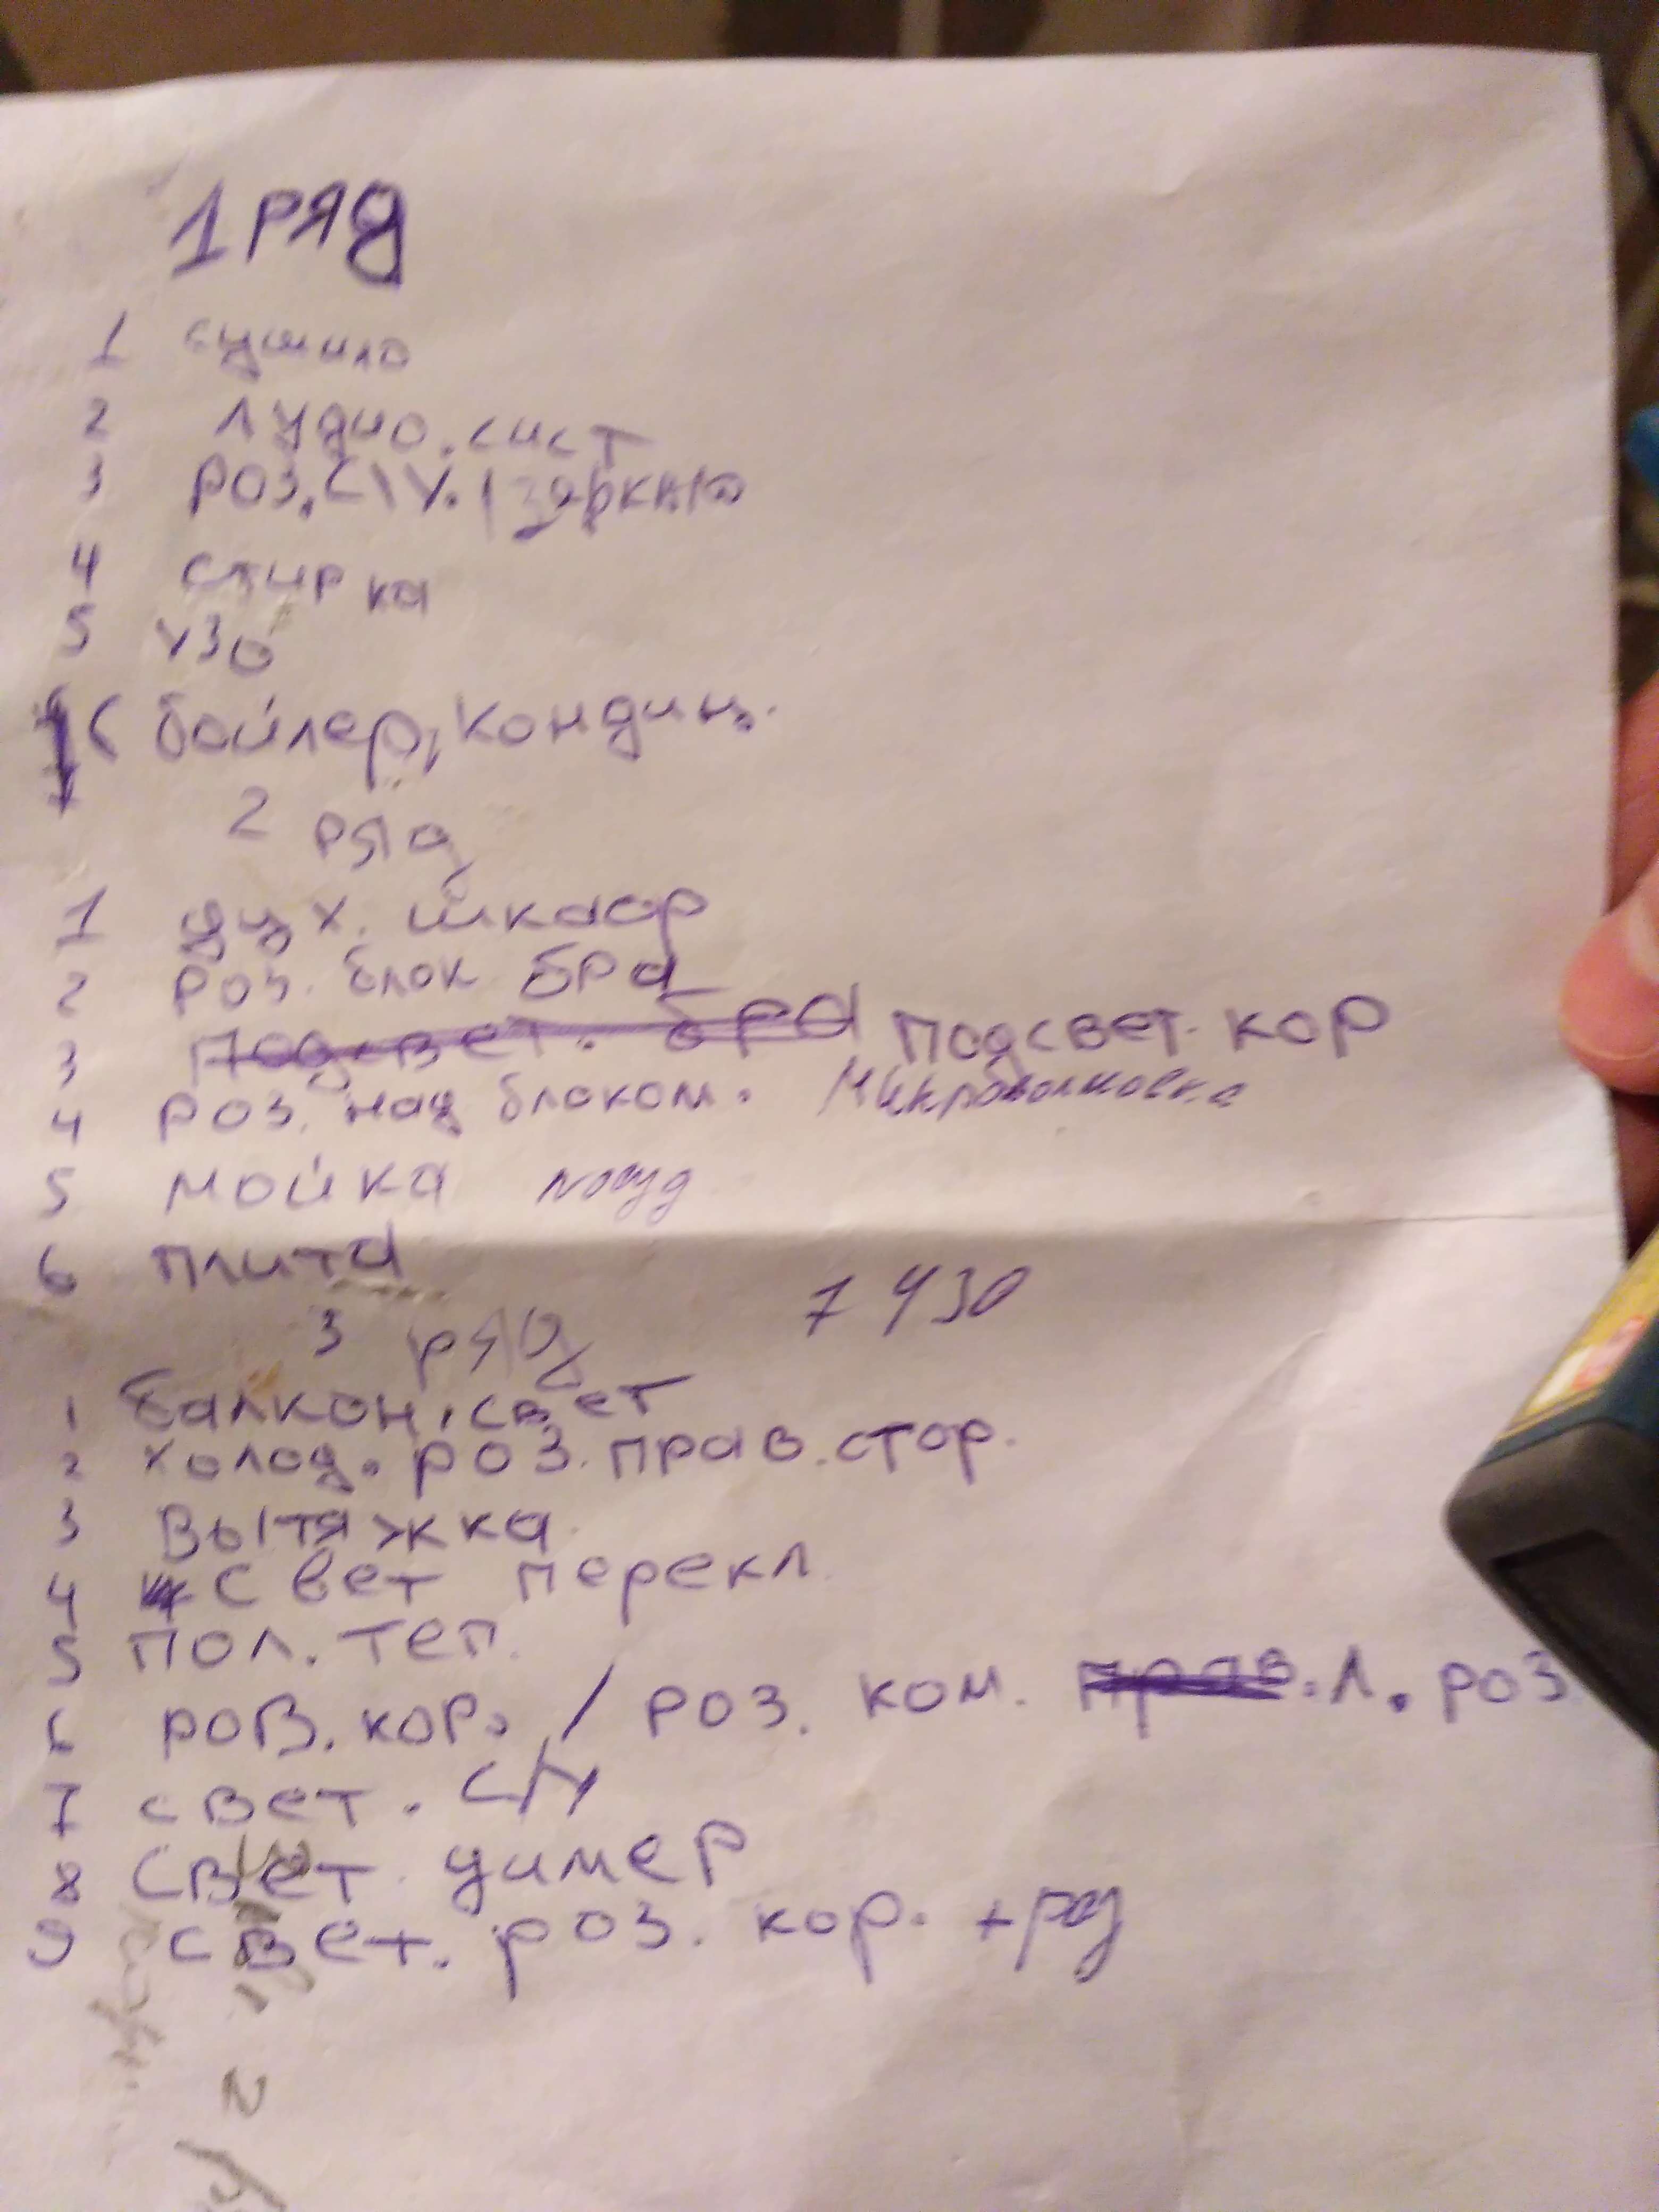 1 ряд
1 сушило
2 Аудио.сист
3 Роз.С/У. | зеркало
4 стирка
5 УЗО
6 бойлер, кондиц.
2 ряд
1 дух. шкаф
2 Роз. блок бра
3 Подсвет. бра Подсвет. кор
4 Роз. над блоком. Микроволновка
5 мойка посуд
6 плита
3 ряд
7 УЗО
1 Балкон, свет
2 Холод. роз. прав. стор.
3 Вытяжка
4 Свет перекл.
5 Пол. теп.
6 роз. кор. / роз. ком. прав. Л. роз
7 свет. с/у
8 Свет. димер
9 свет. роз. кор.
2